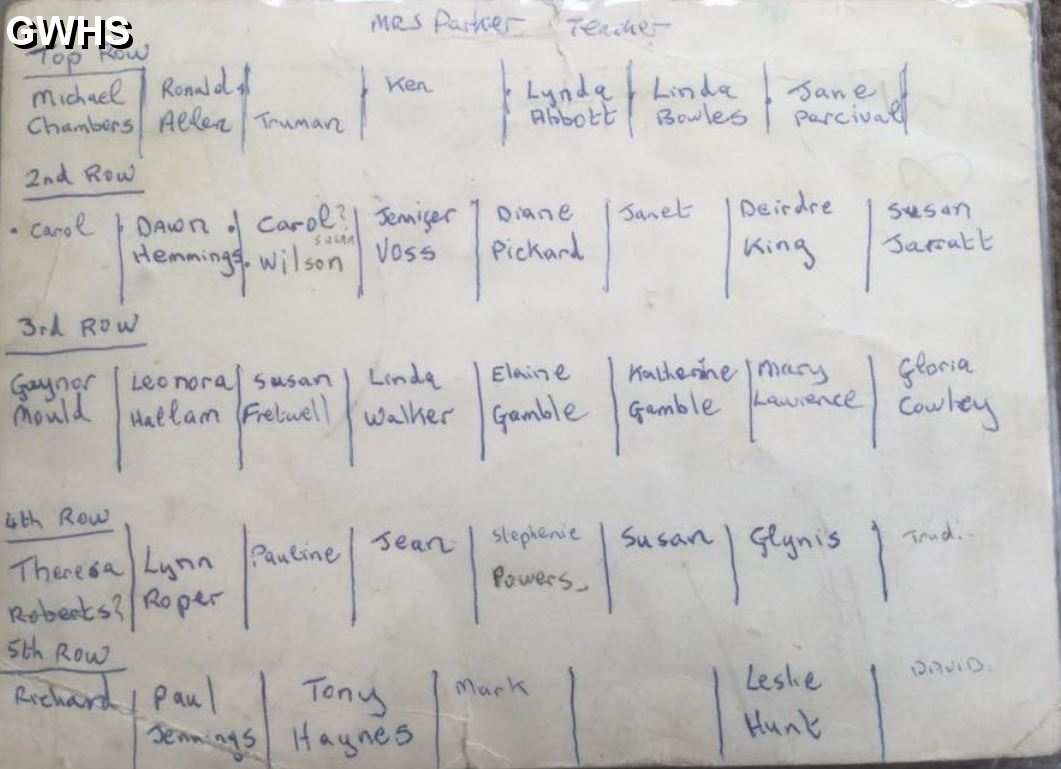 GWHS
MRS Parker Teacher
Top Row
Michael Ronald Ken Lynda Linda Jane
Chambers Allen Truman Abbott Bowles Parcival
2nd Row
Carol DAWN Carol? Jenifer Diane Janet Deirdre Susan
susan
Hemmings Wilson Voss Pickard King Jarratt
3rd Row
Gaynor Leonora Susan Linda Elaine Katherine Mary Gloria
Mould Hallam Fretwell Walker Gamble Gamble Lawrence Cowley
4th Row
Theresa Lynn Pauline Jean Stephenie Susan Glynis Trudi
Roberts? Roper Powers
5th Row
Richard Paul Tony Mark Leslie DAVID.
Jennings Haynes Hunt